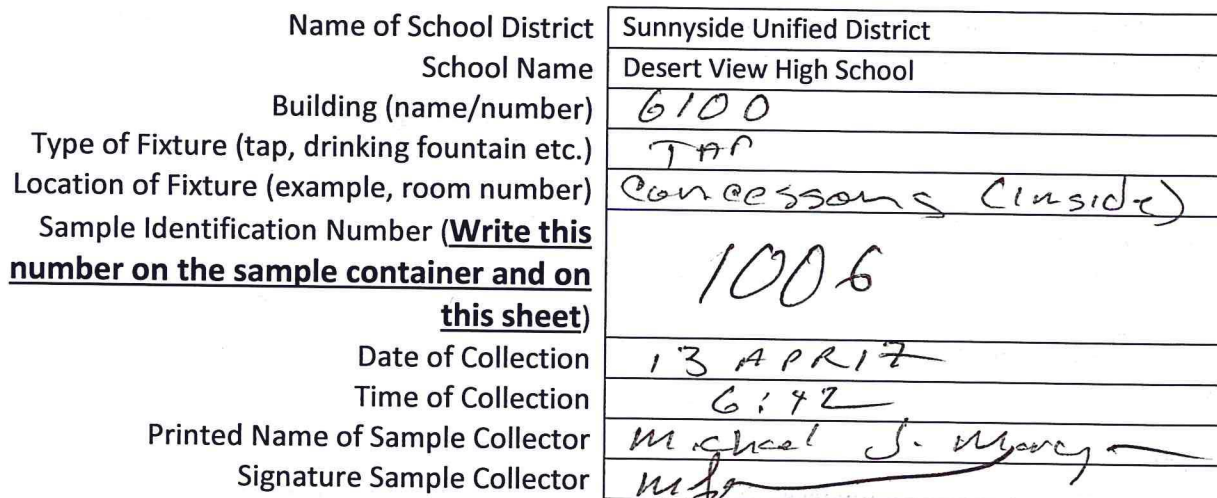 Name of School District Sunnyside Unified District
School Name Desert View High School
Building (name/number) 6100
Type of Fixture (tap, drinking fountain etc.) TAP
Location of Fixture (example, room number) Concessons (inside)
Sample Identification Number (Write this
number on the sample container and on
this sheet)
1006
Date of Collection 13 APR17
Time of Collection 6:42
Printed Name of Sample Collector Michael J.
Signature Sample Collector